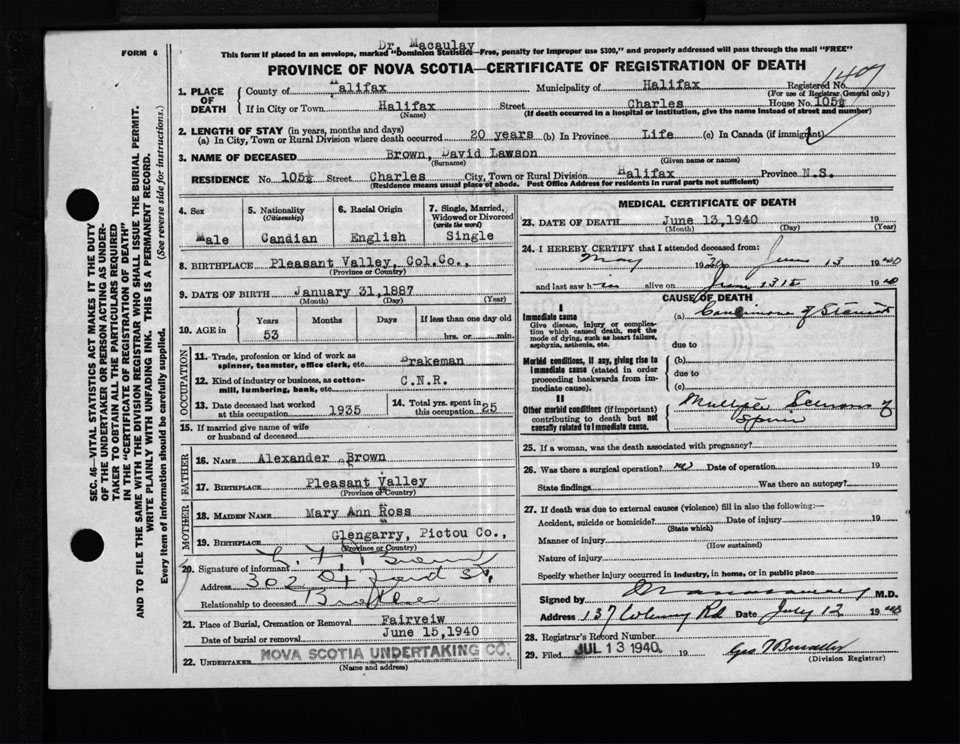 FORM 6
Dr. Macaulay
This form if placed in an envelope, marked "Dominion Statistics—Free, penalty for improper use $300," and properly addressed will pass through the mail "FREE"
PROVINCE OF NOVA SCOTIA—CERTIFICATE OF REGISTRATION OF DEATH
1. PLACE OF DEATH
County of Halifax Municipality of Halifax Registered No. 1407
(For use of Registrar General only)
If in City or Town Halifax Street Charles House No. 105½
(Name) (If death occurred in a hospital or institution, give the name instead of street and number)
2. LENGTH OF STAY (in years, months and days)
(a) In City, Town or Rural Division where death occurred 20 years (b) In Province Life (c) In Canada (if immigrant)
3. NAME OF DECEASED Brown, David Lawson
(Surname) (Given name or names)
RESIDENCE No. 105½ Street Charles City, Town or Rural Division Halifax Province N.S.
(Residence means usual place of abode. Post Office Address for residents in rural parts not sufficient)
4. Sex Male
5. Nationality (Citizenship) Candian
6. Racial Origin English
7. Single, Married, Widowed or Divorced (write the word) Single
8. BIRTHPLACE Pleasant Valley, Col.Co.,
(Province or Country)
9. DATE OF BIRTH January 31,1887
(Month) (Day) (Year)
10. AGE in Years Months Days If less than one day old
53 hrs. or min.
OCCUPATION
11. Trade, profession or kind of work as spinner, teamster, office clerk, etc. Brakeman
12. Kind of industry or business, as cotton-mill, lumbering, bank, etc. C.N.R.
13. Date deceased last worked at this occupation 1935
14. Total yrs. spent in this occupation 25
15. If married give name of wife or husband of deceased
FATHER
16. NAME Alexander Brown
17. BIRTHPLACE Pleasant Valley
(Province or Country)
MOTHER
18. MAIDEN NAME Mary Ann Ross
19. BIRTHPLACE Glengarry, Pictou Co.,
(Province or Country)
20. Signature of informant Brown
Address 302 Oxford St.
Relationship to deceased Brother
21. Place of Burial, Cremation or Removal Fairveiw
Date of burial or removal June 15,1940
22. UNDERTAKER NOVA SCOTIA UNDERTAKING CO.
(Name and address)
MEDICAL CERTIFICATE OF DEATH
23. DATE OF DEATH June 13,1940 19
(Month) (Day) (Year)
24. I HEREBY CERTIFY that I attended deceased from:
May 19 to June 13 1940
and last saw him alive on June 13th 1940
CAUSE OF DEATH
I
Immediate cause (a) Carcinoma of Stomach
Give disease, injury or complication which caused death, not the mode of dying, such as heart failure, asphyxia, asthenia, etc.
due to
Morbid conditions, if any, giving rise to immediate cause (stated in order proceeding backwards from immediate cause).
(b)
due to
(c)
II
Other morbid conditions (if important) contributing to death but not causally related to immediate cause.
Multiple Sclerosis of Spine
25. If a woman, was the death associated with pregnancy?
26. Was there a surgical operation? no Date of operation 19
State findings Was there an autopsy?
27. If death was due to external causes (violence) fill in also the following:—
Accident, suicide or homicide? Date of injury 19
(State which)
Manner of injury
(How sustained)
Nature of injury
Specify whether injury occurred in industry, in home, or in public place
Signed by M.D.
Address 137 Rd Date July 12 1940
28. Registrar's Record Number
29. Filed JUL 13 1940 19
(Division Registrar)
SEC. 46—VITAL STATISTICS ACT MAKES IT THE DUTY
OF THE UNDERTAKER OR PERSON ACTING AS UNDER-
TAKER TO OBTAIN ALL THE PARTICULARS REQUIRED
IN THE "CERTIFICATE OF REGISTRATION OF DEATH"
AND TO FILE THE SAME WITH THE DIVISION REGISTRAR WHO SHALL ISSUE THE BURIAL PERMIT.
WRITE PLAINLY WITH UNFADING INK. THIS IS A PERMANENT RECORD.
Every item of information should be carefully supplied. (See reverse side for instructions.)